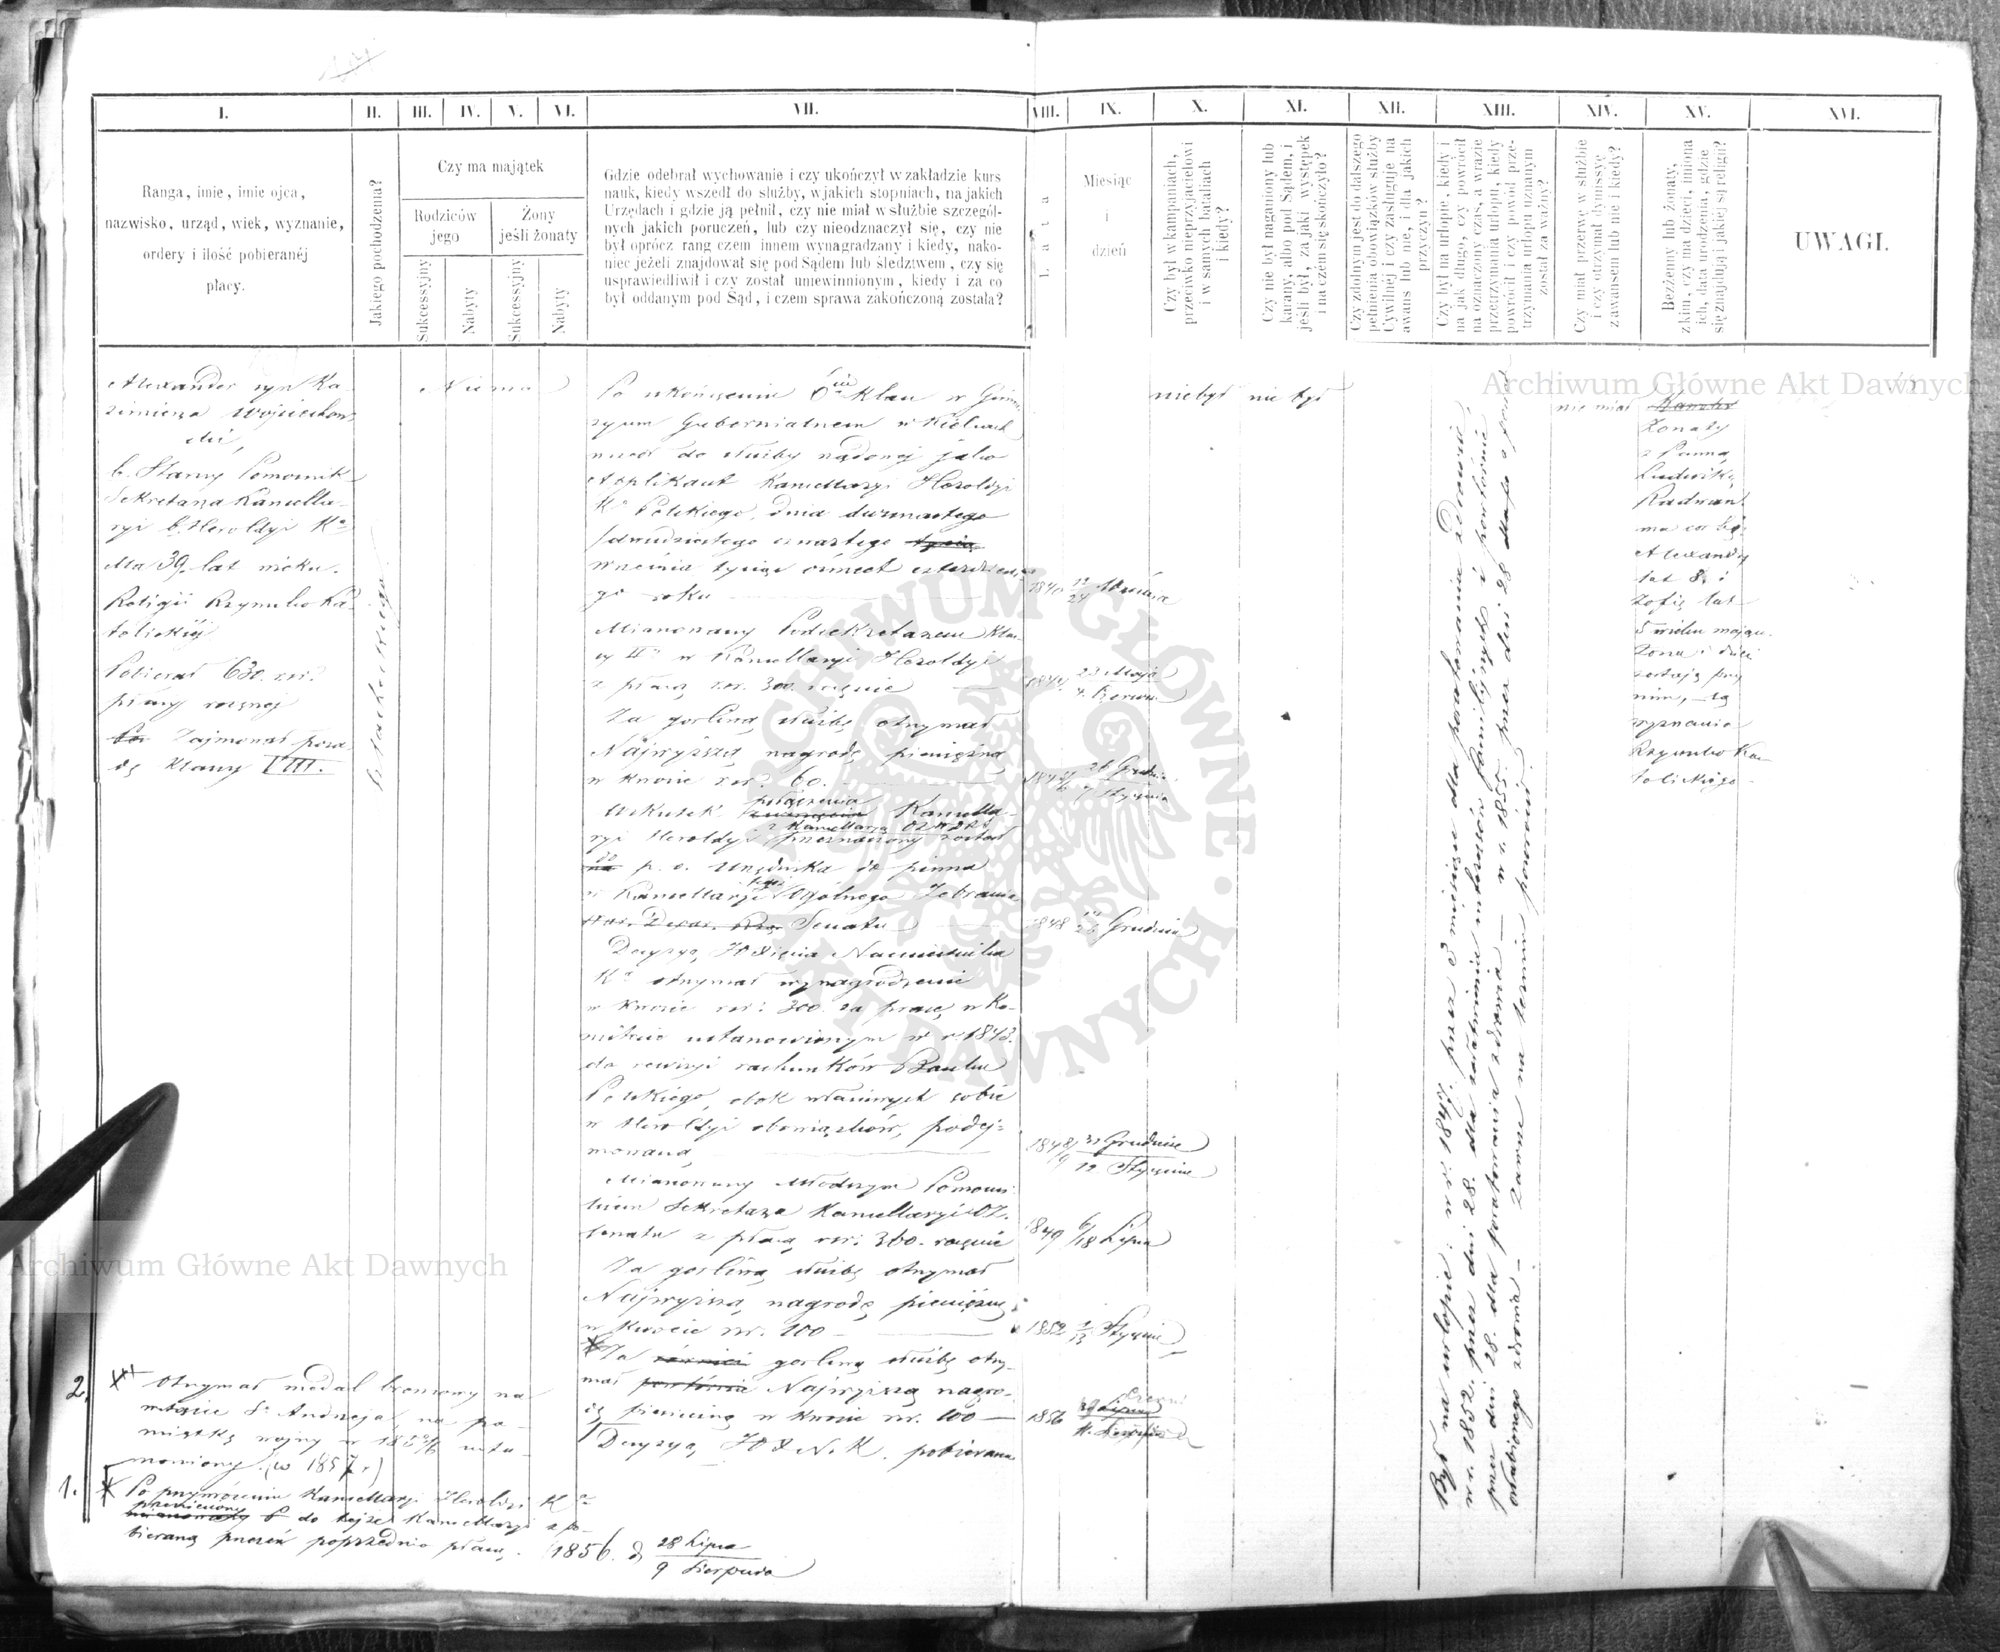 I. II. III. IV. V. VI. VII. VIII. IX. X. XI. XII. XIII. XIV. XV. XVI.
Ranga, imie, imie ojca,
nazwisko, urząd, wiek, wyznanie,
ordery i ilość pobieranéj
płacy.
Jakiego pochodzenia?
Czy ma majątek
Rodziców
jego
Żony
jeśli żonaty
Sukcessyjny
Nabyty
Sukcessyjny
Nabyty
Gdzie odebrał wychowanie i czy ukończył w zakładzie kurs
nauk, kiedy wszedł do służby, w jakich stopniach, na jakich
Urzędach i gdzie ją pełnił, czy nie miał w służbie szczegól-
nych jakich poruczeń, lub czy nieodznaczył się, czy nie
był oprócz rang czem innem wynagradzany i kiedy, nako-
niec jeżeli znajdował się pod Sądem lub śledztwem, czy się
usprawiedliwił i czy został uniewinnionym, kiedy i za co
był oddanym pod Sąd, i czem sprawa zakończoną została?
Lata
Miesiąc
i
dzień
Czy był w kampaniach,
przeciwko nieprzyjacielowi
i w samych bataliach
i kiedy?
Czy nie był naganiony lub
karany, albo pod Sądem, i
jeśli był, za jaki występek
i na czém się skończyło?
Czy zdolnym jest do dalszego
pełnienia obowiązków służby
Cywilnéj i czy zasługuje na
awans lub nie, i dla jakich
przyczyn?
Czy był na urlopie, kiedy i
na jak długo, czy powrócił
na oznaczony czas, a w razie
przetrzymania urlopu, kiedy
powrócił i czy powód prze-
trzymania urlopu uznanym
został za ważny?
Czy miał przerwę w służbie
i czy otrzymał dymissyę
z awansem lub nie i kiedy?
Bezżenny lub żonaty,
z kim, czy ma dzieci, imiona
ich, data urodzenia, gdzie
się znajdują i jakiéj są religii?
UWAGI.
Alexander syn Ka-
zimierza Wojciechow-
ski,
b. Starszy Pomocnik
Sekretarza Kancella-
ryi b. Heroldyi Kr.
Ma 39 lat wieku.
Religii Rzymsko Ka-
tolickiéj
Pobierał 630. rsr.
płacy rocznej
Zajmował posa-
dę klassy VIII.
Szlacheckiego
Niema
Po ukończeniu 6ciu klass w Gimna-
zyum Gubernialnem w Kielcach
wszedł do służby rządowej jako
Applikant Kancellaryi Heroldyi
Kr. Polskiego, dnia dwunastego
/dwudziestego czwartego
września tysiąc ośmset czterdzieste-
go roku
1840 12/24 Września
Mianowany Podsekretarzem klas-
sy IIej w Kancellaryi Heroldyi
z płacą rsr. 300. rocznie
1844 23 Maja
4. Czerwca
Za gorliwą służbę otrzymał
Najwyższą nagrodę pieniężną
w kwocie rsr. 60.
26 Grudnia
7 Stycznia
Wskutek połączenia Kancella-
z Kancellaryą
ryi Heroldyi przeznaczony został
do p. o. Urzędnika do pisma
w Kancellaryi tegoż Ogólnego Zebrania
Senatu
1848 14/26 Grudnia
Decyzyą JO Xięcia Namiestnika
Kr. otrzymał wynagrodzenie
w kwocie rsr. 300. za pracę w Ko-
mitecie ustanowionym w r. 1843.
do rewizyi rachunków Banku
Polskiego, obok właściwych sobie
w Heroldyi obowiązków, podej-
mowaną
1848/9 31 Grudnia
12 Stycznia
Mianowany Młodszym Pomocni-
kiem Sekretarza Kancellaryi OZ.
Senatu z płacą rsr. 360. rocznie
1849 6/18 Lipca
Za gorliwą służbę otrzymał
Najwyższą nagrodę pieniężną
w kwocie rsr. 100
1852 1/13 Stycznia
Za gorliwą służbę otrzy-
mał Najwyższą nagro-
dę pieniężną w kwocie rsr. 100
1856
Decyzyą JO X N. K. pobierana
niebył
nie był
Był na urlopie: w r. 1847. przez 3 miesiące dla poratowania zdrowia,
w r. 1852. przez dni 28. dla załatwienia interesów familijnych i powtórnie
przez dni 28. dla poratowania zdrowia — w r. 1855. przez dni 28 dla po-
osłabionego zdrowia — Zawsze na termin powrócił
nie miał
Żonaty
z Panną
Ludwiką
Radwan
ma cór.
Alexandrę
lat 8. i
Zofię lat
5 wieku mające.
Żona i dzieci
zostają przy
nim, są
wyznania
Rzymsko Ka-
tolickiego
2. Otrzymał medal bronzowy na
wstędze Sgo Andrzeja, na pa-
miątkę wojny w 1853/6 usta-
nowiony. (w 1857 r)
1. Po przywróceniu Kancellaryi Heroldyi Kr.
przeniesiony do tejże Kancellaryi z po-
bieraną przezeń poprzednio płacą.
1856. d 28 Lipca
9 Sierpnia
Archiwum Główne Akt Dawnych
Archiwum Główne Akt Dawnych
ARCHIWUM GŁÓWNE AKT DAWNYCH